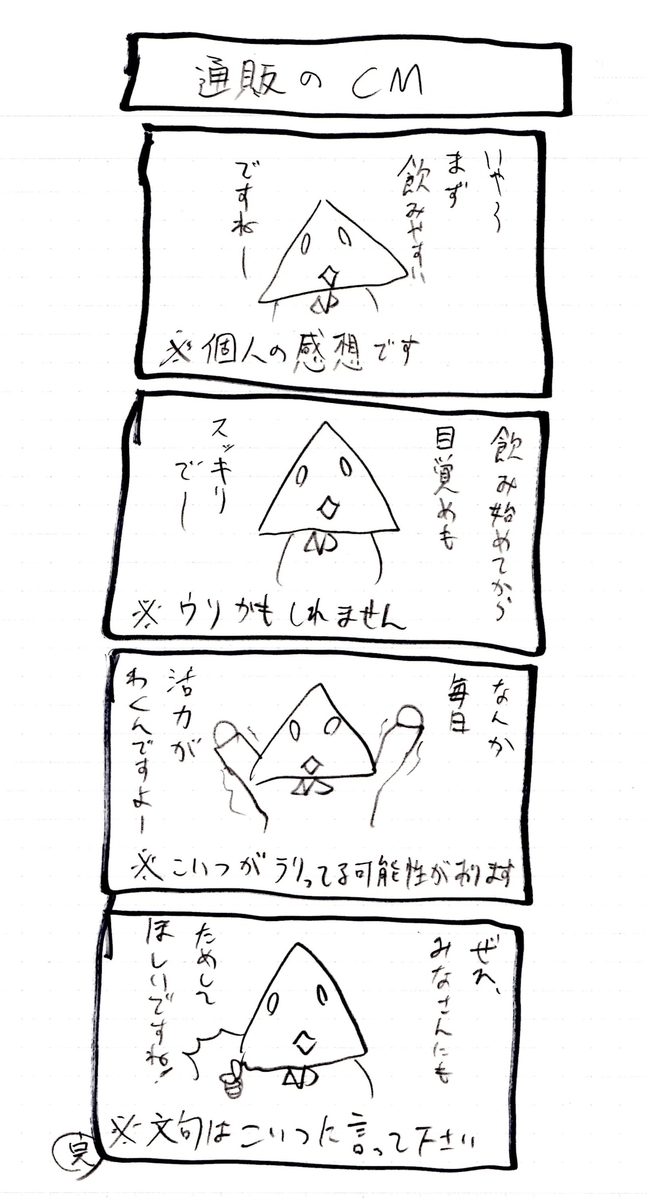 通販のCM
いやぁ
まず
飲みやすい
ですねー
※個人の感想です
飲み始めてから
目覚めも
スッキリ
でー
※ウソかもしれません
なんか
毎日
活力が
わくんですよー
※こいつがラリってる可能性があります
ぜひ、
みなさんにも
ためして
ほしいですね!
※文句はこいつに言って下さい